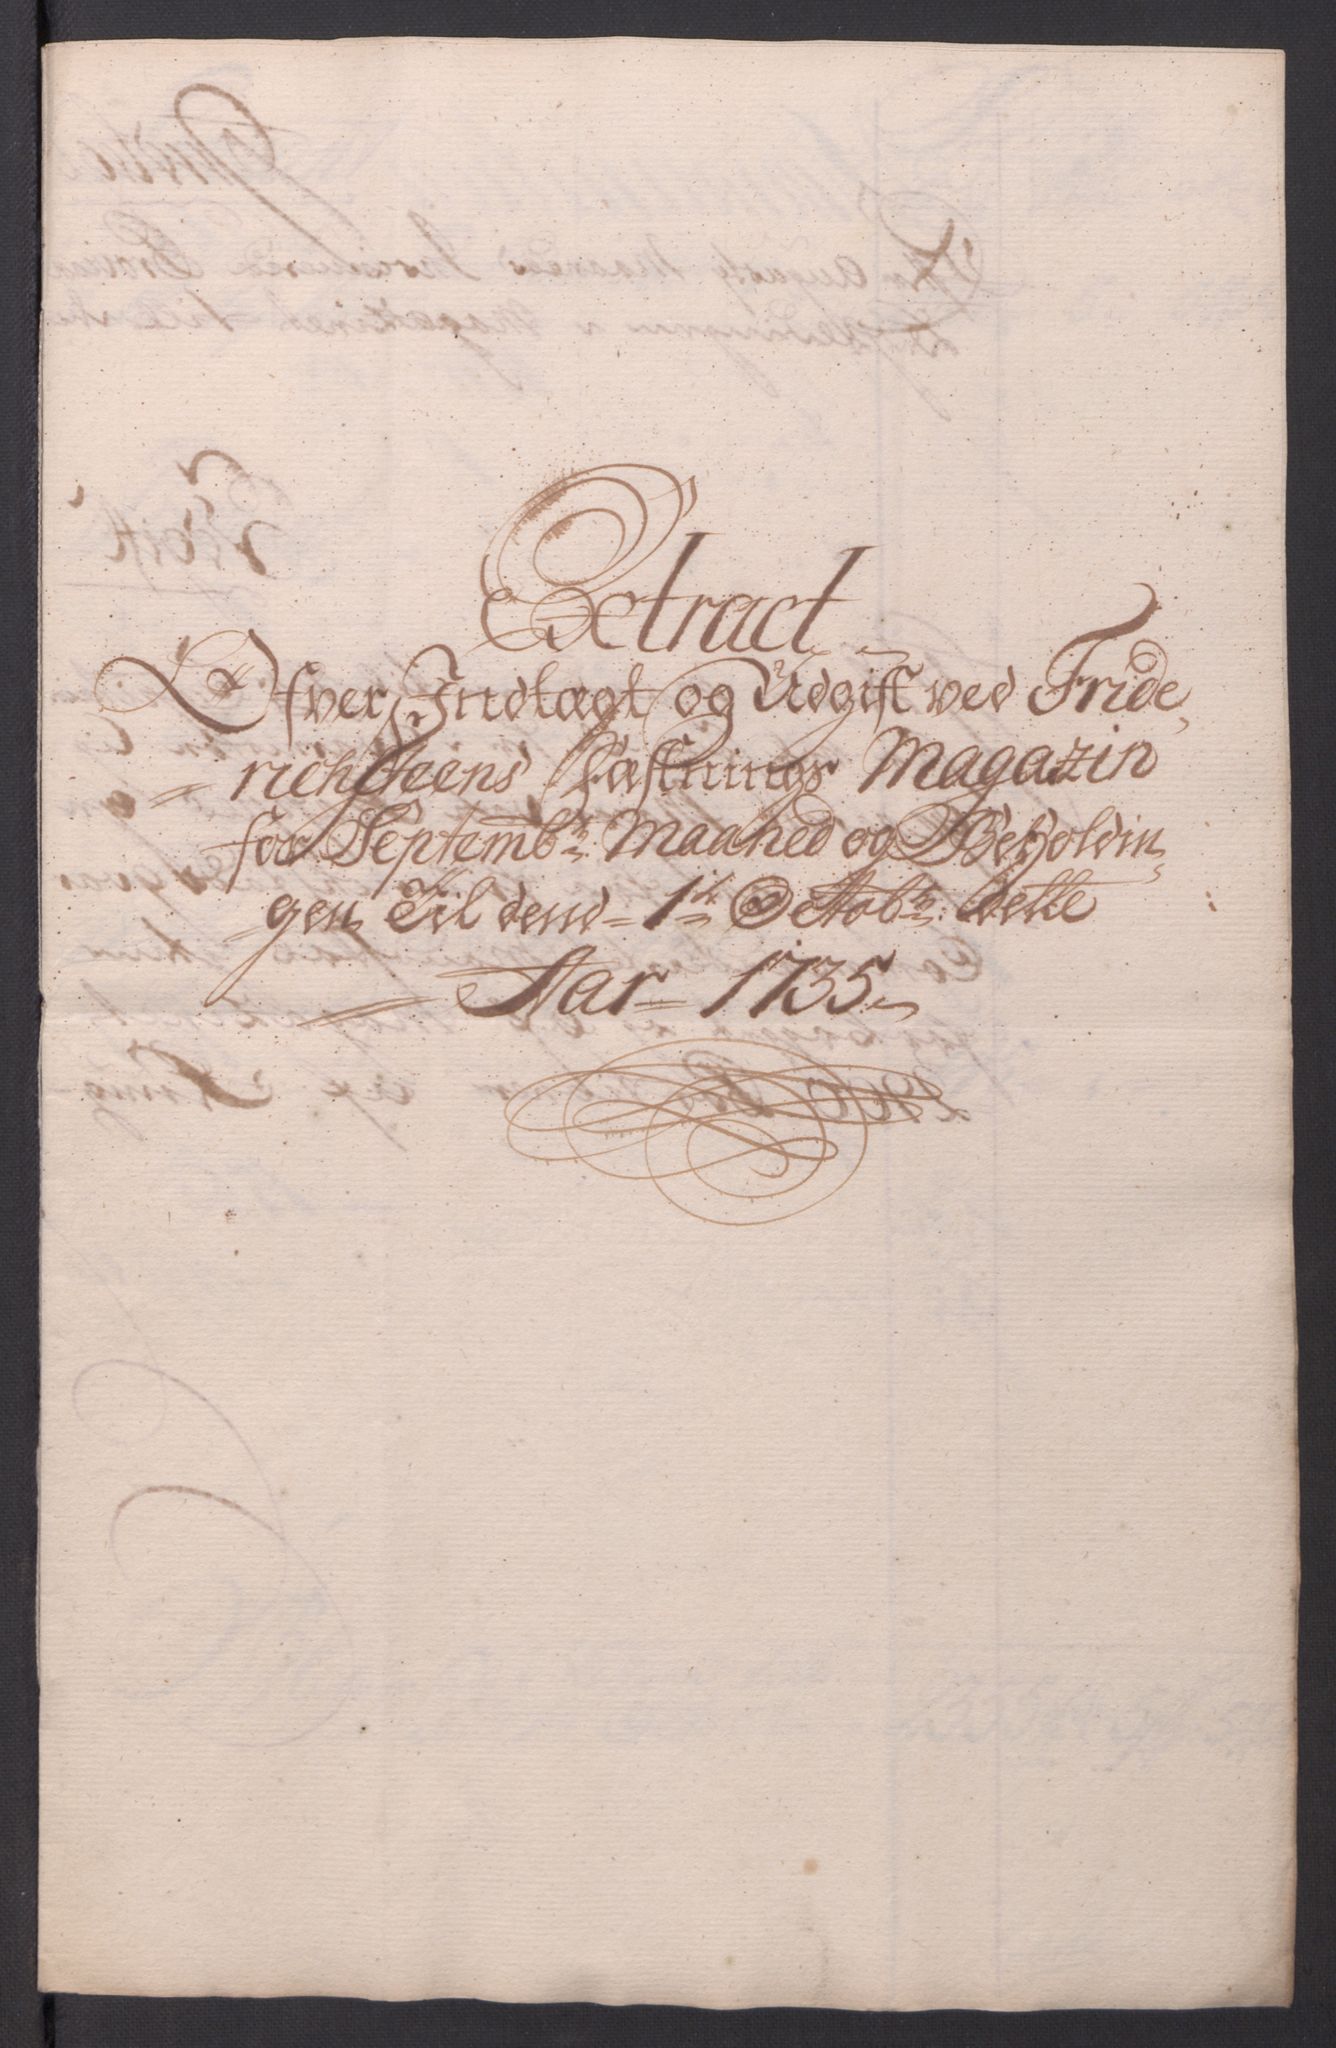 Extract
Ofver Indtægt og Udgift ved Fride,
richsteens Fæstnings Magazin
for Septembr: Maaned og Beholdin,
gen Til dend 1te Octobr: dette
Aar 1735